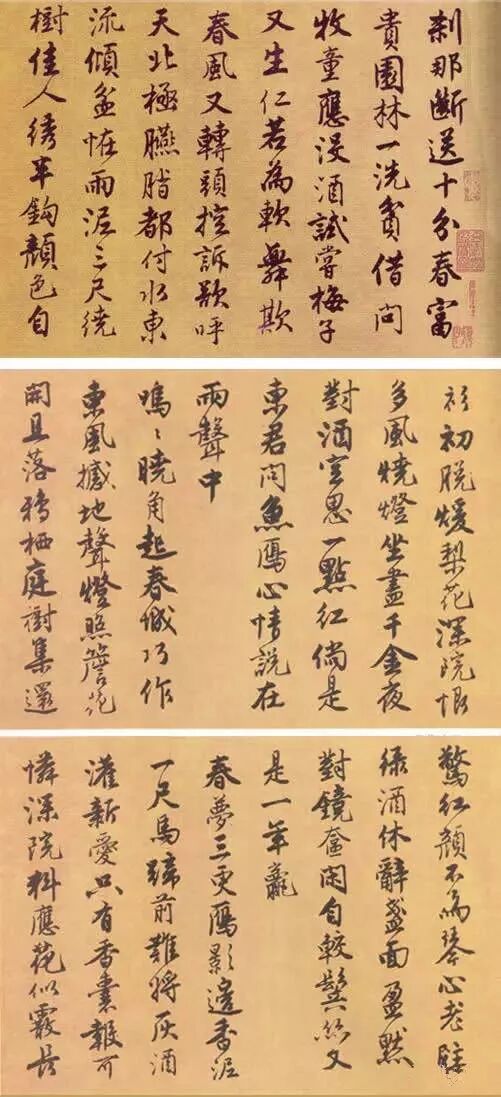 刹那斷送十分春富
貴園林一洗貧借問
牧童應沒酒試嘗梅子
又生仁若為軟舞欺
春風又轉頭控訴欲呼
天北極臙脂都付水東
流傾盆怪雨泥三尺繞
樹佳人繡半鉤顏色自
衫初脫煖梨花深院恨
多風燒燈坐盡千金夜
對酒空思一點紅倘是
東君問魚雁心情說在
雨聲中
嗚〻曉角起春城巧作
東風撼地聲燈照簷花
開且落鴉栖庭樹集還
驚紅顏不為琴心老駐
綠酒休辭盞面盈默
對鏡奩閑自較鬢絲又
是一年
春夢三更雁影邊香泥
一尺馬蹄前難將灰酒
灌新愛只有香囊報可
憐深院料應花似霰長